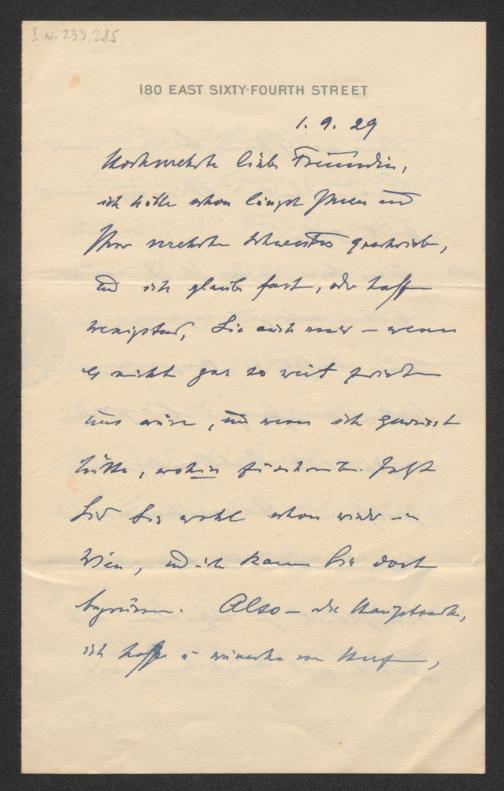 I.N. 233.285
180 EAST SIXTY-FOURTH STREET
1. 9. 29
Hochverehrte liebe Freundin,
ich hätte schon längst Ihnen und
Ihrer verehrten Schwester geschrieben,
und ich glaube fast, oder hoffe
wenigstens, Sie auch mir – wenn
es nicht gar so weit zwischen
uns wäre, und wenn ich gewusst
hätte, wohin Jetzt
sind Sie wohl schon wieder in
Wien, und ich kann Sie dort
begrüssen. Also – die Hauptsache,
ich hoffe u wünsche von Herzen,